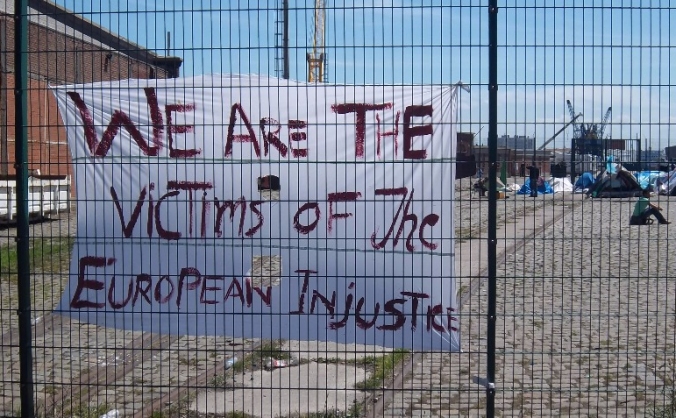 WE ARE THE
VICTIMS OF The
EUROPEAN INJUSTICE